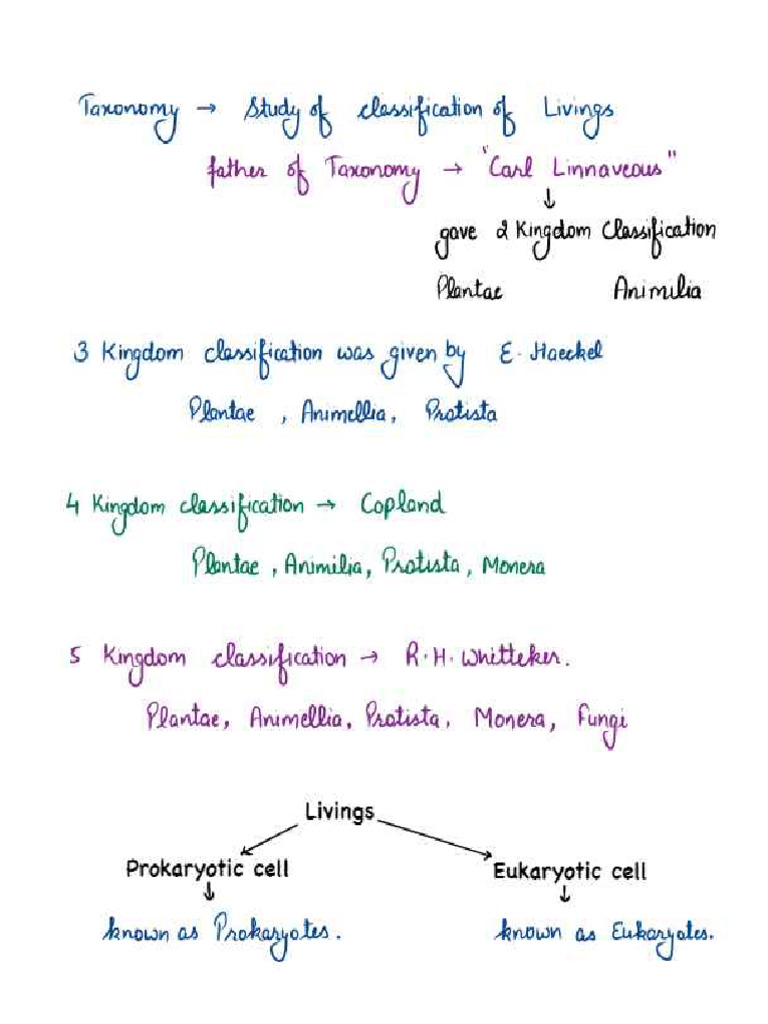 Taxonomy → Study of classification of Livings
father of Taxonomy → "Carl Linnaveous"
↓
gave 2 Kingdom Classification
Plantae Animilia
3 Kingdom classification was given by E. Haeckel
Plantae , Animellia, Protista
4 Kingdom classification → Copland
Plantae , Animilia, Protista, Monera
5 Kingdom classification → R.H. Whitteker.
Plantae, Animellia, Protista, Monera, Fungi
Livings
Prokaryotic cell Eukaryotic cell
↓ ↓
known as Prokaryotes. known as Eukaryotes.